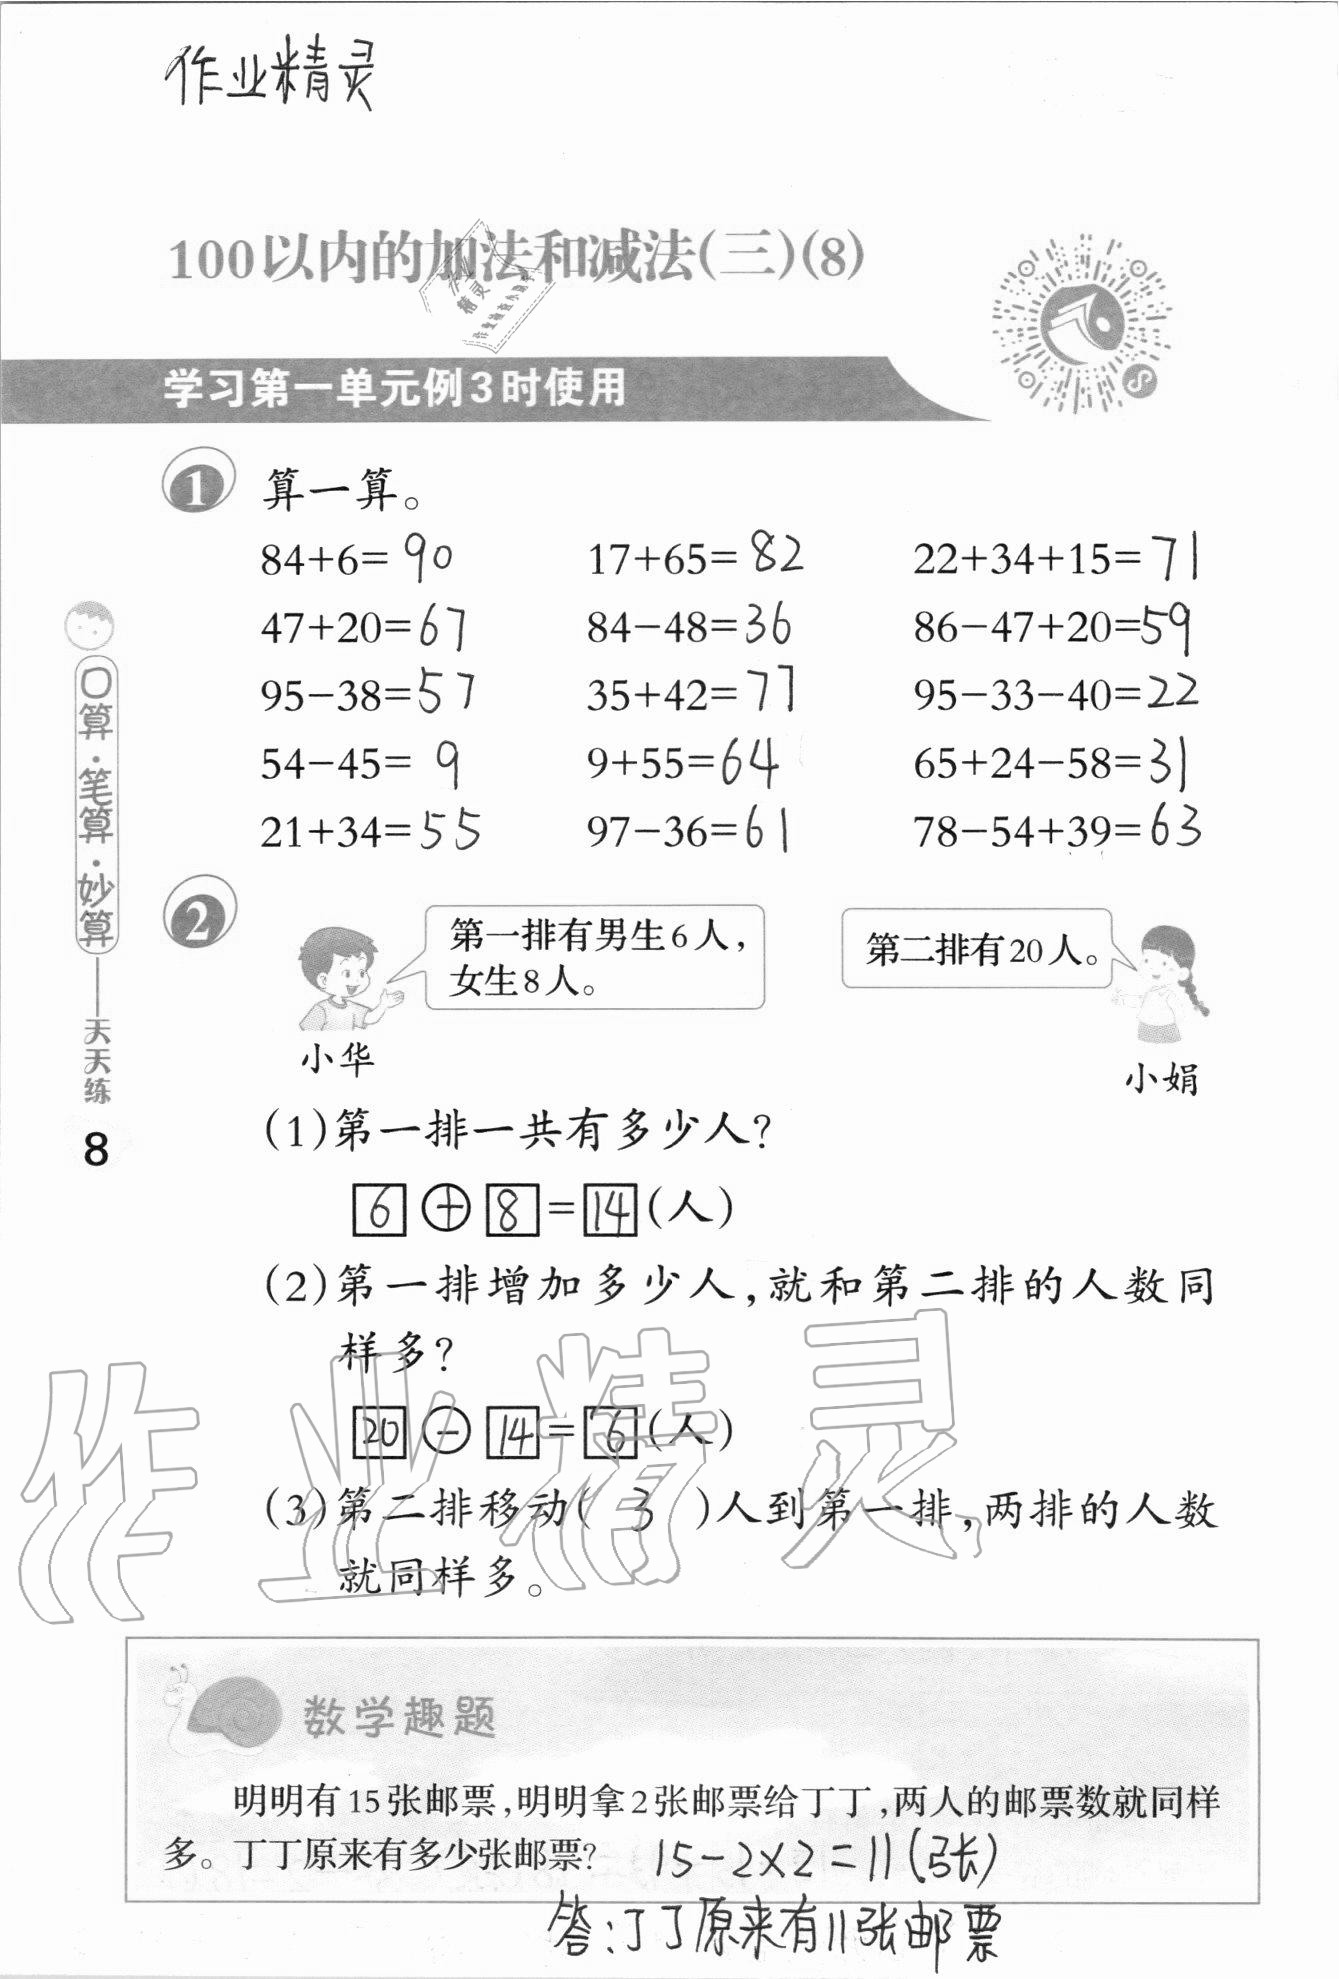 作业精灵
100以内的加法和减法(三)(8)
学习第一单元例3时使用
1 算一算。
84+6=90 17+65=82 22+34+15=71
47+20=67 84-48=36 86-47+20=59
95-38=57 35+42=77 95-33-40=22
54-45=9 9+55=64 65+24-58=31
21+34=55 97-36=61 78-54+39=63
口算·笔算·妙算——天天练
8
2
第一排有男生6人,
女生8人。
小华
第二排有20人。
小娟
(1)第一排一共有多少人?
6+8=14(人)
(2)第一排增加多少人,就和第二排的人数同
样多?
20-14=6(人)
(3)第二排移动(3)人到第一排,两排的人数
就同样多。
作业精灵
数学趣题
明明有15张邮票,明明拿2张邮票给丁丁,两人的邮票数就同样
多。丁丁原来有多少张邮票? 15-2×2=11(张)
答:丁丁原来有11张邮票